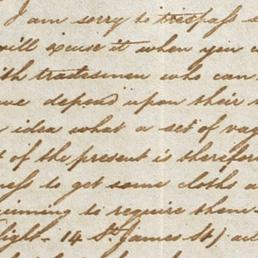 I am sorry to trespass
will excuse it when you
with tradesmen who can
depend upon their
idea what a set of
of the present is therefore
to get some cloths
to require them
14 St. James St)